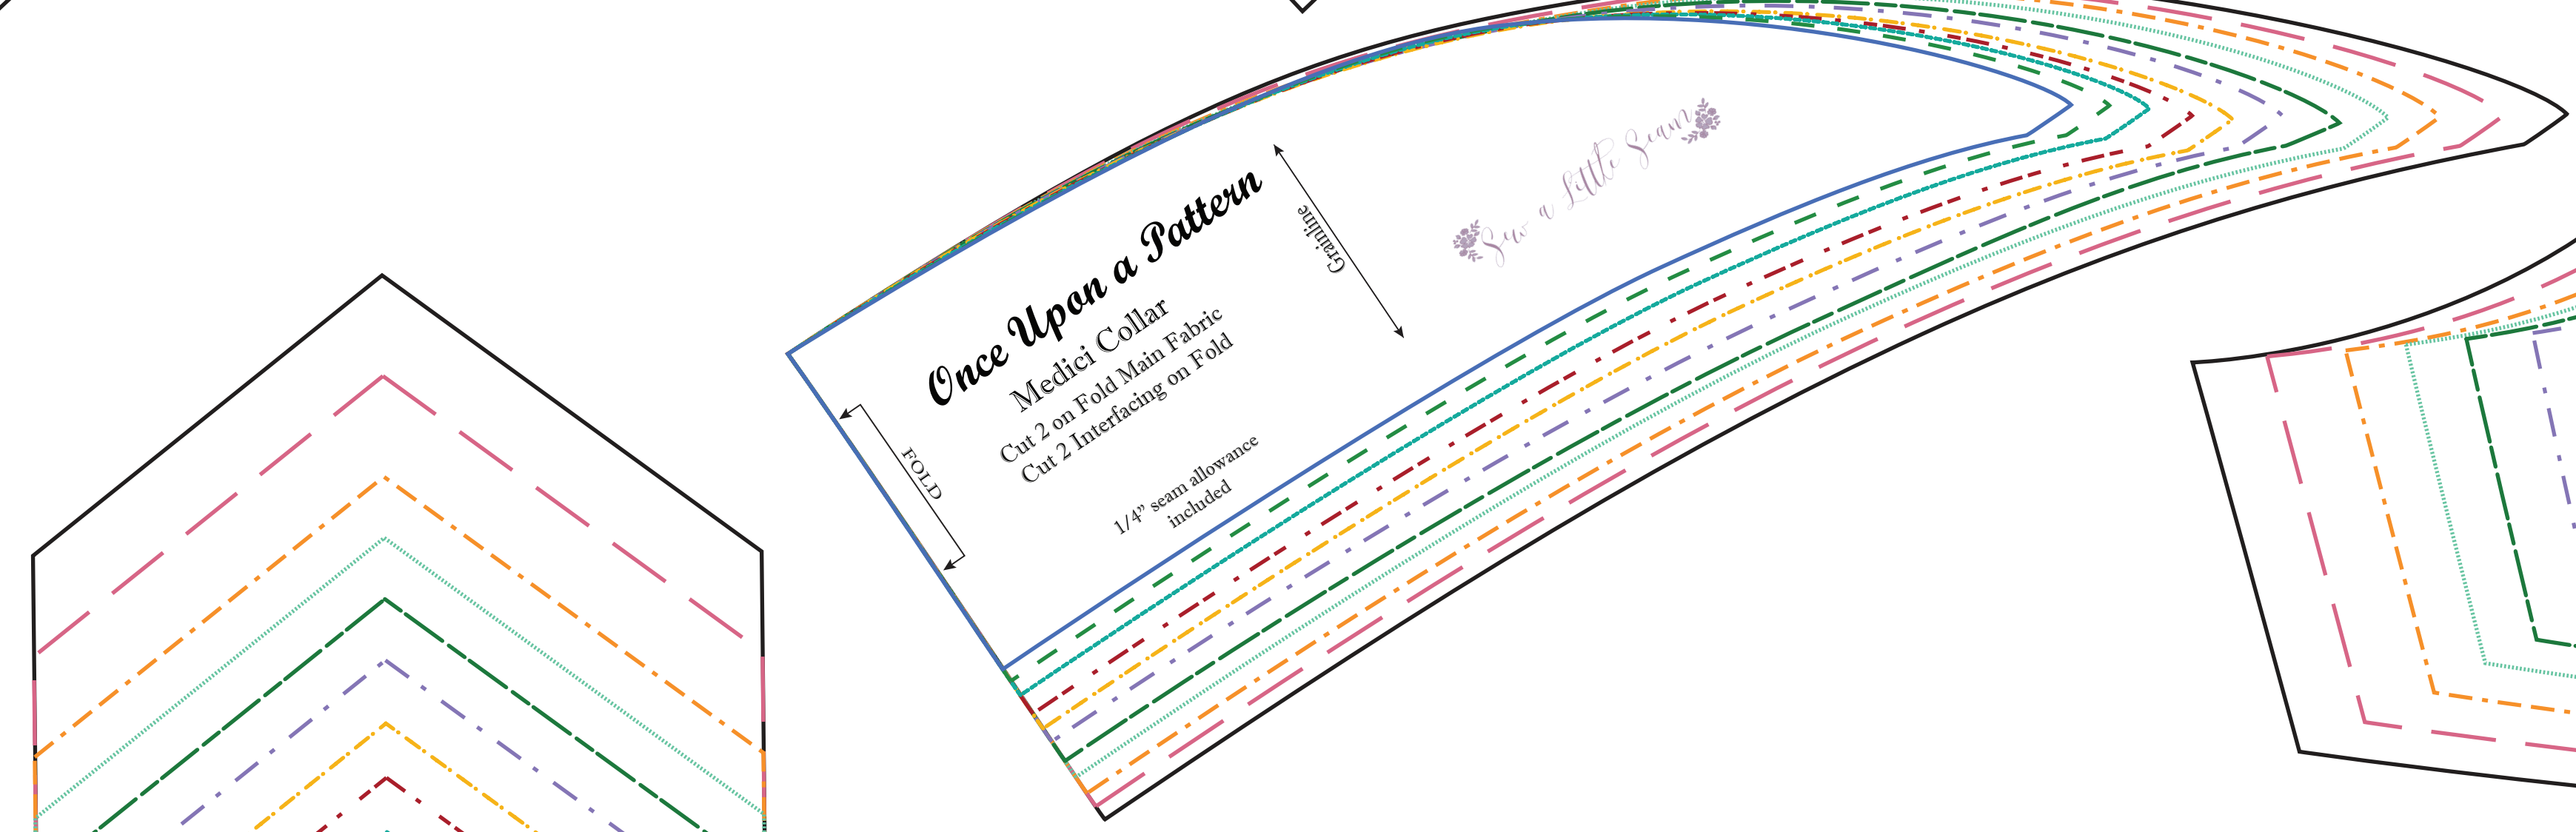 Once Upon a Pattern
Medici Collar
Cut 2 on Fold Main Fabric
Cut 2 Interfacing on Fold
1/4” seam allowance
included
FOLD
Grainline
Sew a Little Seam